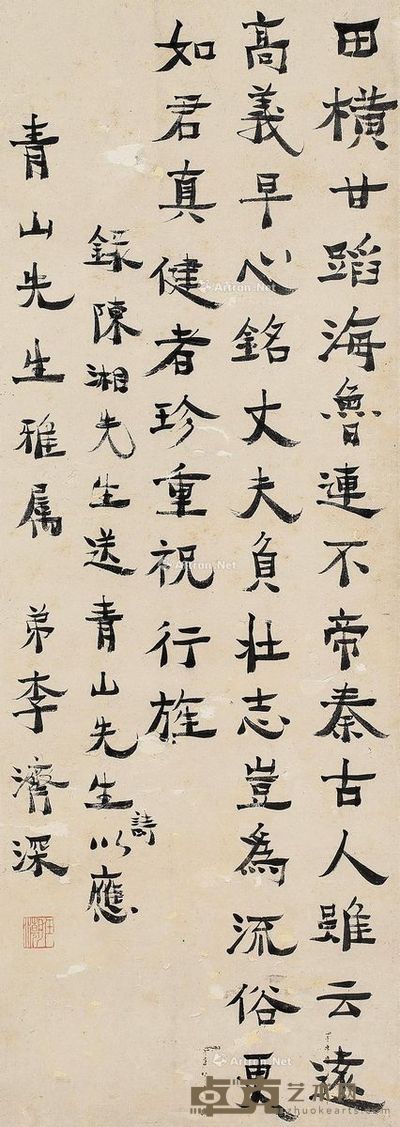 田橫甘蹈海魯連不帝秦古人雖云遠
高義早心銘丈夫負壯志豈為流俗更
如君真健者珍重祝行旌
錄陳湘先生送青山先生詩以應
青山先生雅屬 弟李濟深
Artron.Net
卓克艺术网
zhuokearts.com